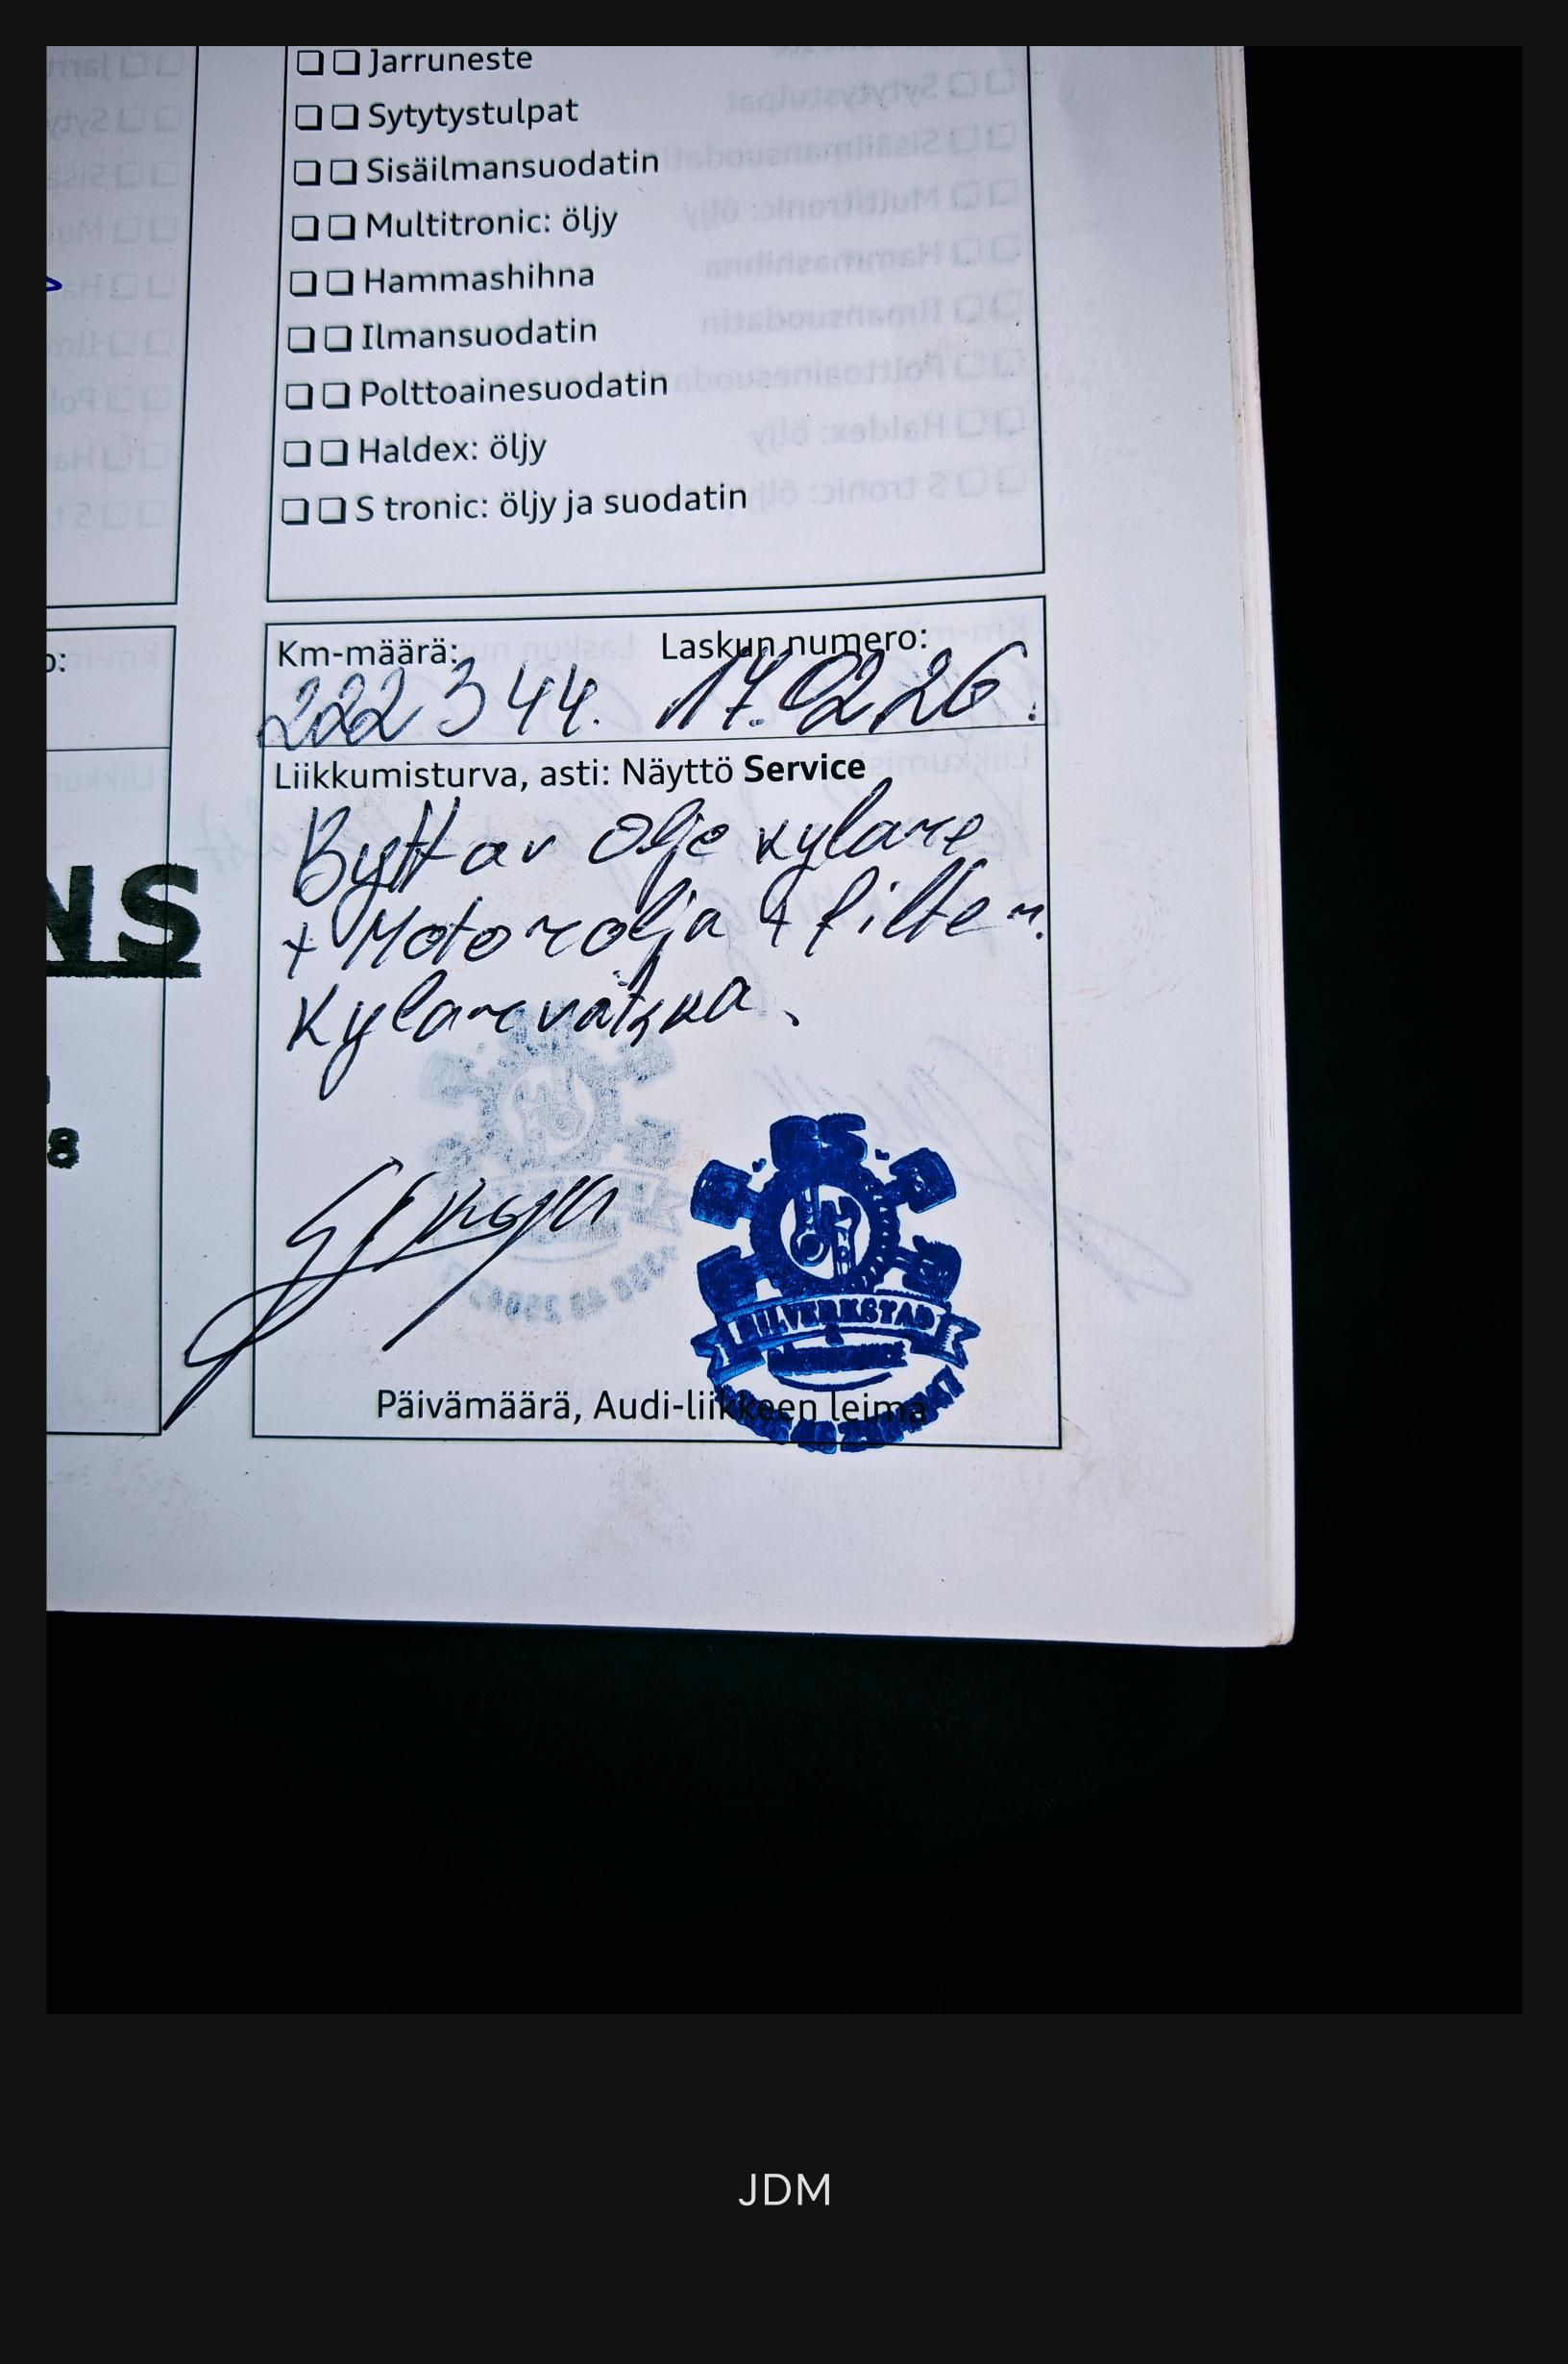 Jarruneste
Sytytystulpat
Sisäilmansuodatin
Multitronic: öljy
Hammashihna
Ilmansuodatin
Polttoainesuodatin
Haldex: öljy
S tronic: öljy ja suodatin
Km-määrä: Laskun numero:
222 344. 17.02.26.
Liikkumisturva, asti: Näyttö Service
Bytt av Olje kylare
+ Motorolja + filter.
Kylarevätska.
NS
8
BILVERKSTAD
&
Päivämäärä, Audi-liikkeen leima
JDM